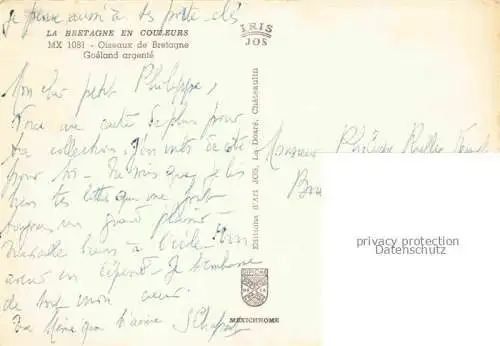 Je pense aussi à tes porte clés
LA BRETAGNE EN COULEURS
MX 1081 - Oiseaux de Bretagne
Goéland argenté
IRIS
JOS
Mon cher petit Philippe,
Voici une carte de plus pour
ta collection. J'en mets de côté
pour toi - Tu sais que je lis
bien tes lettres qui me font
toujours un grand plaisir -
Travaille bien à l'école. On
avenir en dépend - Je t'embrasse
de tout mon cœur.
Ta
qui t'aime
Editions d'Art JOS, Le Doaré, Châteaulin
MEXICHROME
Monsieur Philippe
privacy protection
Datenschutz